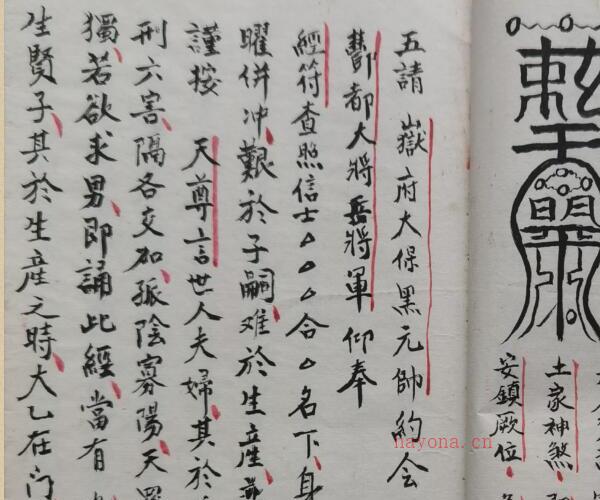 土家神煞
安鎮厥位
五請 嶽府大保黑元帥約会
酆都大將岳將軍仰奉
經符查照信士△△△合△名下身
曜併冲艱於子嗣难於生産
謹按 天尊言世人夫婦其於
刑六害隔各交加孤陰寡陽天
獨若欲求男即誦此經當有
生賢子其於生産之時大乙在门
hayona.cn